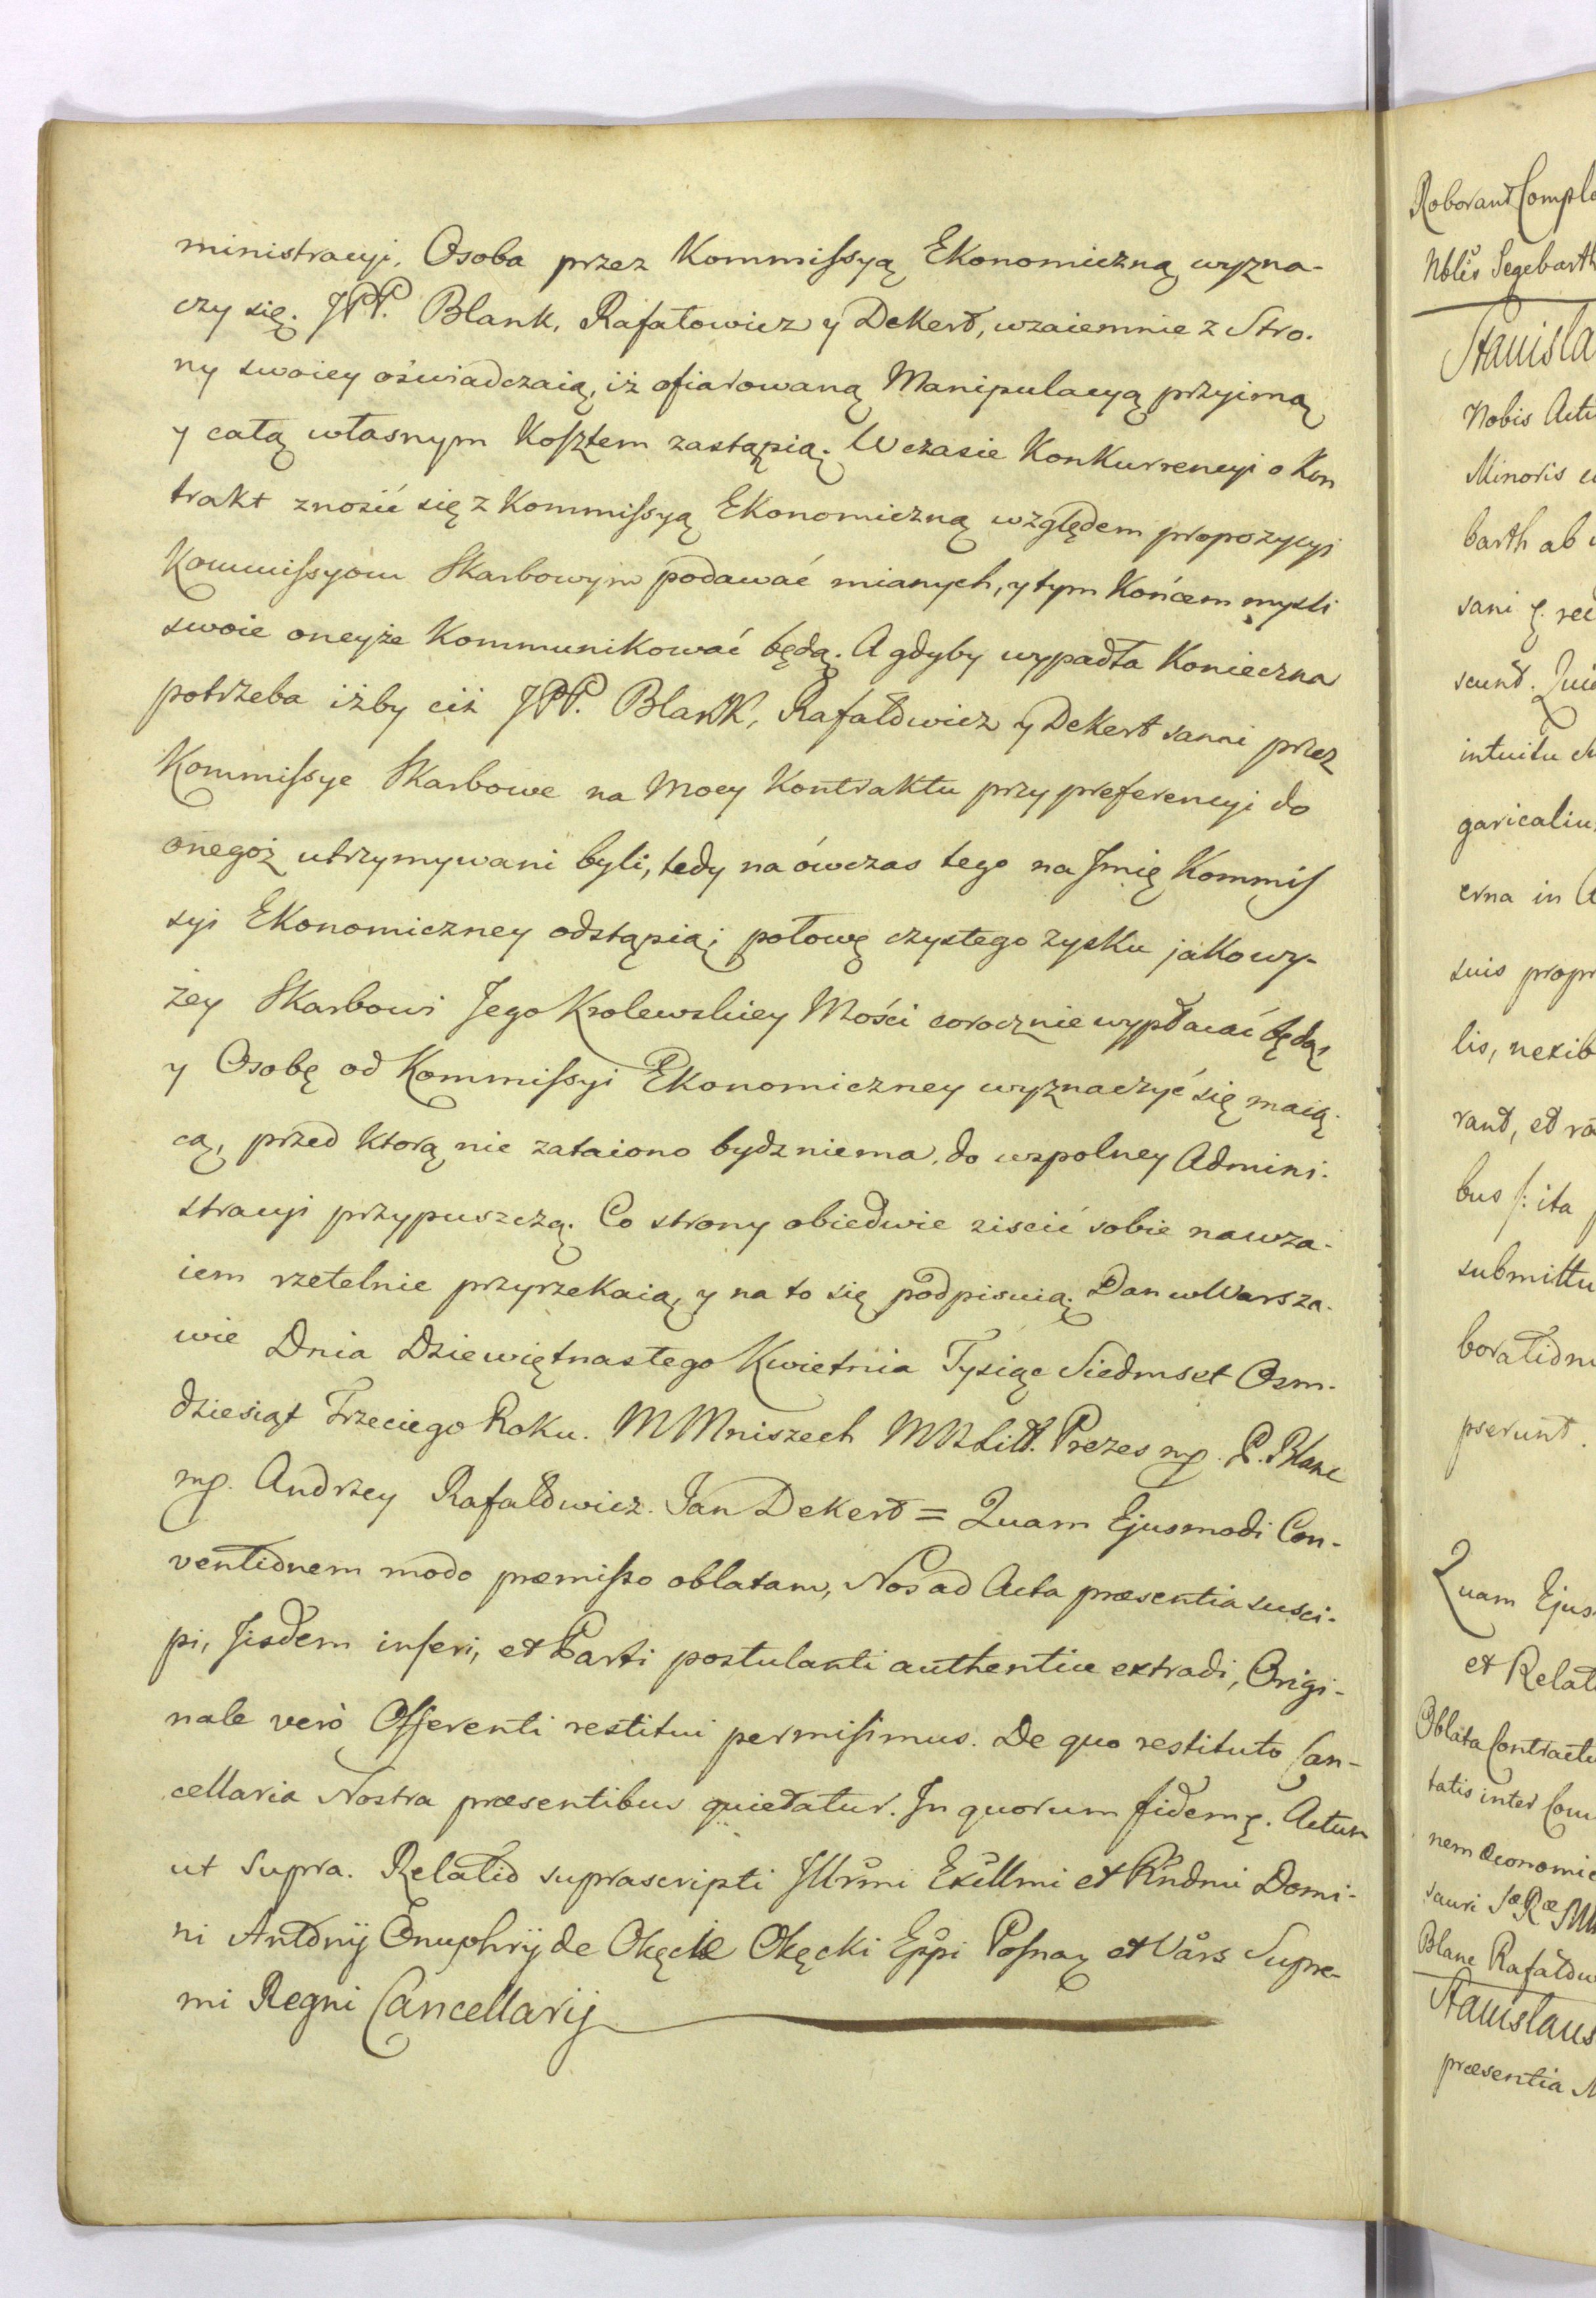 ministracyi, Osoba przez Kommissyą Ekonomiczną wyzna-
czy się. JPP. Blank, Rafałowicz y Dekert, wzaiemnie z Stro-
ny swoiey oświadczaią, iż ofiarowaną Manipulacyą przyimą
y całą własnym Kosztem zastąpią. W czasie Konkurrencyi o Kon
trakt znosić się z Kommissyą Ekonomiczną względem propozycyi
Kommissyom Skarbowym podawać mianych, y tym Końcem myśli
swoie oneyże Kommunikować będą. A gdyby wypadła Konieczna
potrzeba iżby ciż JPP. Blank, Rafałowicz y Dekert sami przez
Kommissye Skarbowe na Mocy Kontraktu przy preferencyi do
onegoż utrzymywani byli, tedy na ówczas tego na Jmię Kommis
syi Ekonomiczney odstąpią; połowę czystego zysku jakowy-
żey Skarbowi Jego Krolewskiey Mości corocznie wypłacać będą,
y Osobę od Kommissyi Ekonomiczney wyznaczyć się maią-
cą, przed ktorą nic zataiono bydz niema, do wspolney Admini-
stracyi przypuszczą. Co strony obiedwie ziscić sobie nawza-
iem rzetelnie przyrzekaią, y na to się podpisuią. Dan w Warsza-
wie Dnia Dziewiętnastego Kwietnia Tysiąc Siedmset Osm-
dziesiąt Trzeciego Roku. M Mniszech M N Litt. Prezes mp. P. Blanc
mp. Andrzey Rafałowicz. Jan Dekert = Quam Ejusmodi Con-
ventionem modo præmisso oblatam, Nos ad Acta præsentia susci-
pi, Jisdem inseri, et Parti postulanti authentice extradi, Origi-
nale verò Offerenti restitui permisimus. De quo restituto Can-
cellaria Nostra præsentibus quietatur. In quorum fidem ꝫ. Actum
ut Supra. Relatio suprascripti Jllrmi Exellmi et Rndmi Domi-
ni Antonij Onuphrij de Okęcie Okęcki Eppi Posnaꝫ et Vars Supre-
mi Regni Cancellarij
Roborant Compla
Nblis Segebarth
Stanisla
Nobis Actu
Minoris
barth ab
sani ꝫ. rec
scunt.
intuitu
garicaliu
erna in
suis propr
lis, nexib
rant, et
bus /: ita
submittu
boration
pserunt.
Quam Ejus
et Relat
Oblata Contractu
tatis inter Com
nem Œconomic
sauri
Blanc Rafałow
Stanislaus
præsentia